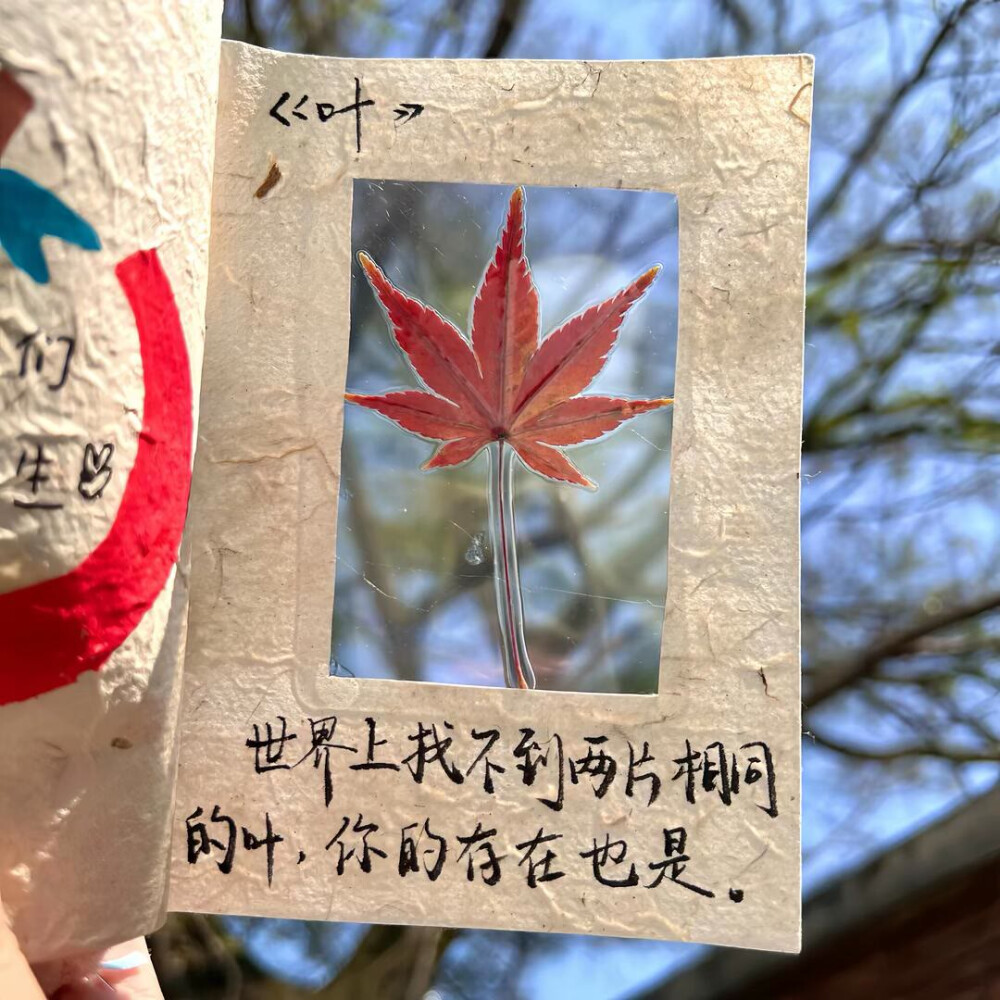 们
生
《叶》
世界上找不到两片相同
的叶，你的存在也是。